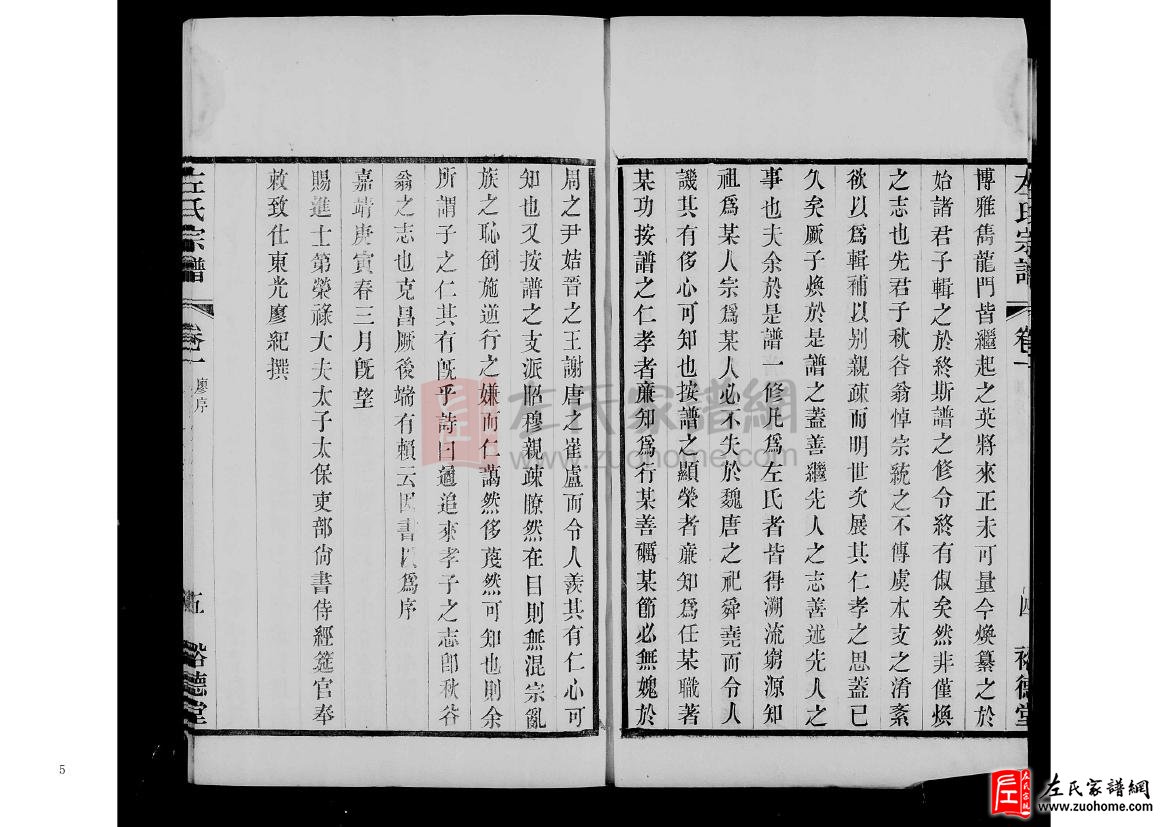 左氏宗譜
卷一
四
裕德堂
博雅雋龍門皆繼起之英將來正未可量今煥纂之於
始諸君子輯之於終斯譜之修令終有俶矣然非僅煥
之志也先君子秋谷翁悼宗統之不傳虞本支之淆紊
欲以爲輯補以别親疎而明世次展其仁孝之思蓋已
久矣厥子煥於是譜之蓋善繼先人之志善述先人之
事也夫余於是譜一修凡爲左氏者皆得溯流窮源知
祖爲某人宗爲某人必不失於魏唐之祀舜堯而令人
譏其有侈心可知也按譜之顯榮者亷知爲任某職著
某功按譜之仁孝者亷知爲行某善礪某節必無媿於
周之尹姞晉之王謝唐之崔盧而令人羨其有仁心可
知也又按譜之支派昭穆親疎瞭然在目則無混宗亂
族之恥倒施逆行之嫌而仁藹然侈蔑然可知也則余
所謂子之仁其有旣乎詩曰遹追來孝子之志卽秋谷
翁之志也克昌厥後端有賴云因書以爲序
嘉靖庚寅春三月旣望
賜進士第榮祿大夫太子太保吏部尙書侍經筵官奉
敕致仕東光廖紀撰
左氏宗譜
卷一
廖序
五
裕德堂
左氏家譜網
www.zuohome.com
5
左氏家譜網
www.zuohome.com